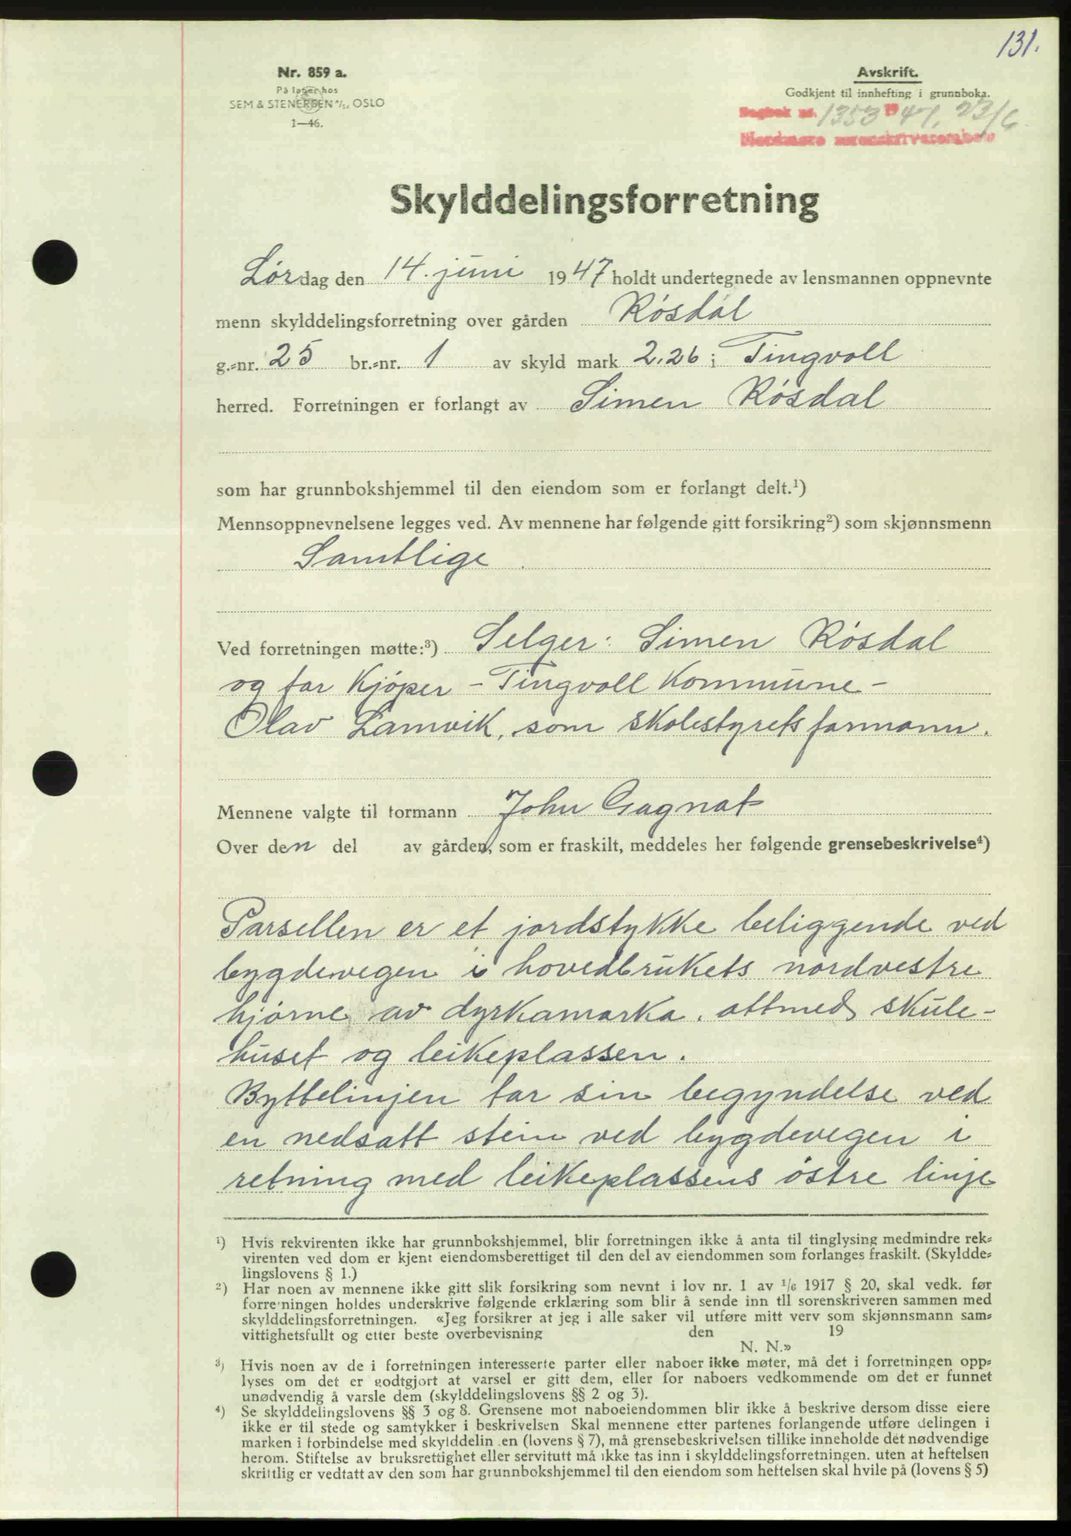 131.
Nr. 859 a.
På lager hos
SEM & STENERSEN A/S, OSLO
1—46.
Avskrift.
Godkjent til innhefting i grunnboka.
Dagbok nr. 1353 19 47, 23/6
Nordmøre sorenskriverembete
Skylddelingsforretning
Lørdag den 14. juni 1947 holdt undertegnede av lensmannen oppnevnte
menn skylddelingsforretning over gården Røsdal
g.-nr. 25 br.-nr. 1 av skyld mark 2.26 i Tingvoll
herred. Forretningen er forlangt av Simen Røsdal
som har grunnbokshjemmel til den eiendom som er forlangt delt.¹)
Mennsoppnevnelsene legges ved. Av mennene har følgende gitt forsikring²) som skjønnsmenn
Samtlige
Ved forretningen møtte:³) Selger: Simen Røsdal
og for Kjøper – Tingvoll Kommune –
Olav Lamvik, som skolestyrets formann.
Mennene valgte til formann John Gagnat
Over den del av gården, som er fraskilt, meddeles her følgende grensebeskrivelse⁴)
Parsellen er et jordstykke beliggende ved
bygdevegen i hovedbrukets nordvestre
hjørne av dyrkamarka, attmed skule-
huset og leikeplassen.
Byttelinjen tar sin begyndelse ved
en nedsatt stein ved bygdevegen i
retning med leikeplassens østre linje
¹) Hvis rekvirenten ikke har grunnbokshjemmel, blir forretningen ikke å anta til tinglysing medmindre rek-
virenten ved dom er kjent eiendomsberettiget til den del av eiendommen som forlanges fraskilt. (Skyldde-
lingslovens § 1.)
²) Har noen av mennene ikke gitt slik forsikring som nevnt i lov nr. 1 av 1/6 1917 § 20, skal vedk. før
forretningen holdes underskrive følgende erklæring som blir å sende inn til sorenskriveren sammen med
skylddelingsforretningen. «Jeg forsikrer at jeg i alle saker vil utføre mitt verv som skjønnsmann sam-
vittighetsfullt og etter beste overbevisning den 19
N. N.»
³) Hvis noen av de i forretningen interesserte parter eller naboer ikke møter, må det i forretningen opp-
lyses om det er godtgjort at varsel er gitt dem, eller for naboers vedkommende om det er funnet
unødvendig å varsle dem (skylddelingslovens §§ 2 og 3).
⁴) Se skylddelingslovens §§ 3 og 8. Grensene mot naboeiendommen blir ikke å beskrive dersom disse eiere
ikke er til stede og samtykker i beskrivelsen Skal mennene etter partenes forlangende utføre delingen i
marken i forbindelse med skylddelingen (lovens § 7), må grensebeskrivelsen tillike inneholde det nødvendige
herom. Stiftelse av bruksrettighet eller servitutt må ikke tas inn i skylddelingsforretningen, uten at heftelsen
skriftlig er vedtatt av den som har grunnbokshjemmel til den eiendom som heftelsen skal hvile på (lovens § 5)